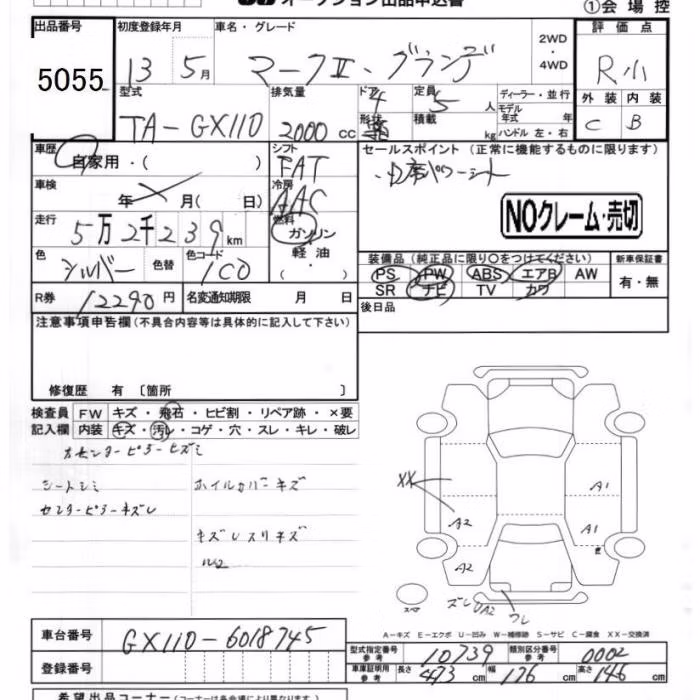 オークション出品申込書
①会場控
出品番号 初度登録年月 車名・グレード 2WD・4WD 評価点
5055 13 5月 マークⅡ・グランデ R小
型式 排気量 ドア 4 定員 5人 ディーラー・並行 外装 内装
TA-GX110 2000cc 形状 積載 kg モデル年式 年 ハンドル 左・右 C B
車歴 自家用・( ) シフト FAT セールスポイント (正常に機能するものに限ります)
車検 年 月( 日) 冷房 AAC
NOクレーム・売切
走行 5万2千239km 燃料 ガソリン・軽油・( )
色 シルバー 色替 色コード 1C0
装備品 (純正品に限り○をつけてください) 新車保証書
PS PW ABS エアB AW 有・無
SR ナビ TV カワ
R券 12290円 名変通知期限 月 日 後日品
注意事項申告欄(不具合内容等は具体的に記入して下さい)
修復歴 有 〔箇所 〕
検査員 FW キズ・飛石・ヒビ割・リペア跡・×要
記入欄 内装 キズ・汚レ・コゲ・穴・スレ・キレ・破レ
シートシミ ホイルカバーキズ
センターピラーキズレ
XX
A1
A2 A1
A2
スペア
ズレ A2
A-キズ E-エクボ U-凹み W-補修跡 S-サビ C-腐食 XX-交換済
車台番号 GX110-6018745
型式指定番号 参考 10739 類別区分番号 参考 0002
登録番号 車庫証明用 参考 長さ 473cm 幅 176cm 高さ 146cm
希望出品コーナー